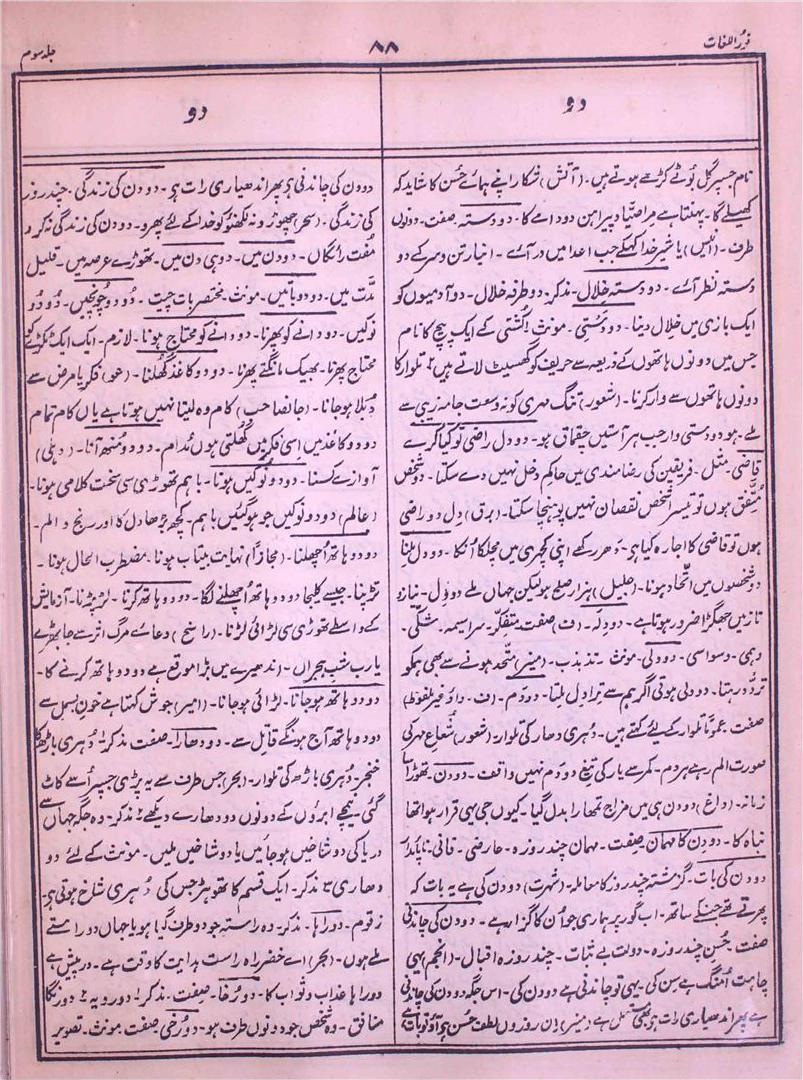 نورُ اللغات
۸۸
جلد سوم
دو
دو
نام جسپر گل بُوٹے کڑھے ہوتے ہیں۔ (آتش) شکار اپنے ہمائے حُسن کا شاید کہ
کھیلے گا۔ پہنتا ہے مراصیّاد پیراہن دودامے کا۔ دودستہ۔ صفت۔ دونوں
طرف۔ (انیس) یا شیر خدا کہکے جب اعدا میں در آئے۔ انبار تن و سر کے دو
دستہ نظر آئے۔ دودستہ خلال۔ مذکر۔ دوطرفہ خلال۔ دو آدمیوں کو
ایک بازی میں خلال دینا۔ دودستی۔ مونث۔ ۱ کُشتی کے ایک پیچ کا نام
جس میں دونوں ہاتھوں کے ذریعہ سے حریف کو گھسیٹ لاتے ہیں ۲ تلوار کا
دونوں ہاتھوں سے وار کرنا۔ (شعور) تنگ مہری کو نہ وسعت جامہ زیبی سے
ملے۔ ہو دودستی وار جب ہر آستیں چقماق ہو۔ دو دل راضی تو کیا کرے
قاضی۔ مثل۔ فریقین کی رضامندی میں حاکم دخل نہیں دے سکتا۔ دو شخص
مُتفّق ہوں تو تیسرا شخص نقصان نہیں پہونچا سکتا۔ (برق) دِل دو راضی
ہوں تو قاضی کا اجارہ کیا ہے۔ دھر کے اپنی کچہری میں مچلکا آنکا۔ دو دل ملنا
دو شخصوں میں اتّحاد ہونا۔ (جلیل) ہزار صلح ہو لیکن جہاں ملے دو دِل۔ نیاز و
ناز میں جھگڑا ضرور ہوتا ہے۔ دودِلہ۔ (ف) صفت۔ متفکّر۔ سراسیمہ۔ شکّی۔
وہمی۔ وسواسی۔ دودلی۔ مونث۔ تذبذب۔ (منیر) متّحد ہونے سے بھی ہمکو
تردُّد رہتا۔ دودلی ہوتی اگر ہم سے ترا دِل ملتا۔ دودَم۔ (ف۔ داؤ غیر ملفوظ)
صفت۔ عموماً تلوار کے لئے کہتے ہیں۔ دُہری دھار کی تلوار۔ (شعور) شعاع مہر کی
صورت الم رہے ہر دم۔ کمر سے یار کی تیغ دودم نہیں واقف۔ دودن۔ تھوڑا سا
زمانہ۔ (داغ) دودن ہی میں مزاج تمھارا بدل گیا۔ کیوں جی یہی قرار ہوا تھا
نباہ کا۔ دودِن کا مہمان۔ صفت۔ مہمان چند روزہ۔ عارضی۔ فانی۔ ناپائدار
دودن کی بات۔ گزشتہ چند روز کا معاملہ۔ (شہرت) دودن کی ہے یہ بات کہ
پھرتے تھے جنکے ساتھ۔ اب گور پر ہماری جو اُن کا گزارا ہے۔ دودن کی چاندنی
صفت۔ حُسنِ چند روزہ۔ دولت بے ثبات۔ چند روزہ اقبال۔ (انجم) یہی
چاہت اُمنگ ہے سِن کی۔ یہی تو چاندنی ہے دودن کی۔ اس جگہ دودن کی چاندنی
ہے پھر اندھیاری رات ہے بھی مستعمل ہے (منیر) اِن روزوں لطفِ حسن ہے آؤ تو بات ہے
دودن کی چاندنی ہے پھر اندھیاری رات ہے۔ دودن کی زندگی۔ چند روز
کی زندگی۔ (سحر) چھوڑو نہ لکھنؤ کو خدا کے لئے پھرو۔ دودن کی زندگی نہ کرو
مفت رائگاں۔ دودن میں۔ دوہی دن میں۔ تھوڑے عرصہ میں۔ قلیل
مدّت میں۔ دو دو باتیں۔ مونث۔ مختصر بات چیت۔ دُودُو چونچیں۔ دُودُو
نوکیں۔ دو دانے کو پھرنا۔ دو دانے کو محتاج ہونا۔ لازم۔ ایک ایک ٹکڑے کو
محتاج پھرنا۔ بھیک مانگتے پھرنا۔ دو دو کاغذ گھُلنا۔ (عو) فکر یا مرض سے
دُبلا ہوجانا۔ (جانصاحب) کام وہ لیتا نہیں ہوتا ہے یاں کام تمام
دو دو کاغذ میں اسی فکر میں گھُلتی ہوں مُدام۔ دو دو مُنھ آنا۔ (دہلی)
آوازے کسنا۔ دو دو نوکیں ہونا۔ باہم تھوڑی سی سخت کلامی ہونا۔
(عالم) دو دو نوکیں جو ہوگئیں باہم۔ کچھ بڑھا دل کا اور رنج و الم۔
دو دو ہاتھ اُچھلنا۔ (مجازاً) نہایت بیتاب ہونا۔ مضطرب الحال ہونا۔
تڑپنا۔ جیسے کلیجا دو دو ہاتھ اُچھلنے لگا۔ دو دو ہاتھ کرنا۔ لڑ پڑنا۔ آزمایش
کے واسطے تھوڑی سی لڑائی لڑنا۔ (راسخ) دعائے مرگ اثر سے جا بھڑے
یا رب شب ہجراں۔ اندھیرے میں بڑا موقع ہے دو دو ہاتھ کرنے کا۔
دو دو ہاتھ ہوجانا۔ لڑائی ہوجانا۔ (امیر) جوش کہتا ہے خونِ بسمل سے
دو دو ہاتھ آج ہونگے قاتل سے۔ دودھارا۔ صفت مذکر ۱ دُہری باڑھ کا
خنجر۔ دُہری باڑھ کی تلوار۔ (بحر) جس طرف سے یہ پڑی جسپر اُسے کاٹ
گئی۔ نیچے ابروں کے دونوں دودھارے دیکھے ۲ مذکر۔ وہ جگہ جہاں سے
دریا کی دو شاخیں ہوجائیں یا دو شاخیں ملیں۔ مونث کے لئے دو
دھاری ۳ مذکر۔ ایک قسم کا تھوہڑ جس کی دُہری شاخ ہوتی ہے۔
زقوم۔ دوراہا۔ مذکر۔ وہ راستہ جو دوطرف گیا ہو یا جہاں دو راستے
ملے ہوں۔ (بحر) اے خضر راہ راست ہدایت کا وقت ہے۔ درپیش ہے
دوراہا عذاب و ثواب کا۔ دورُخا۔ صفت۔ مذکر ۱ دورویہ ۲ دورنگا
منافق۔ وہ شخص جو دونوں طرف ہو۔ دورُخی صفت مونث۔ تصویر